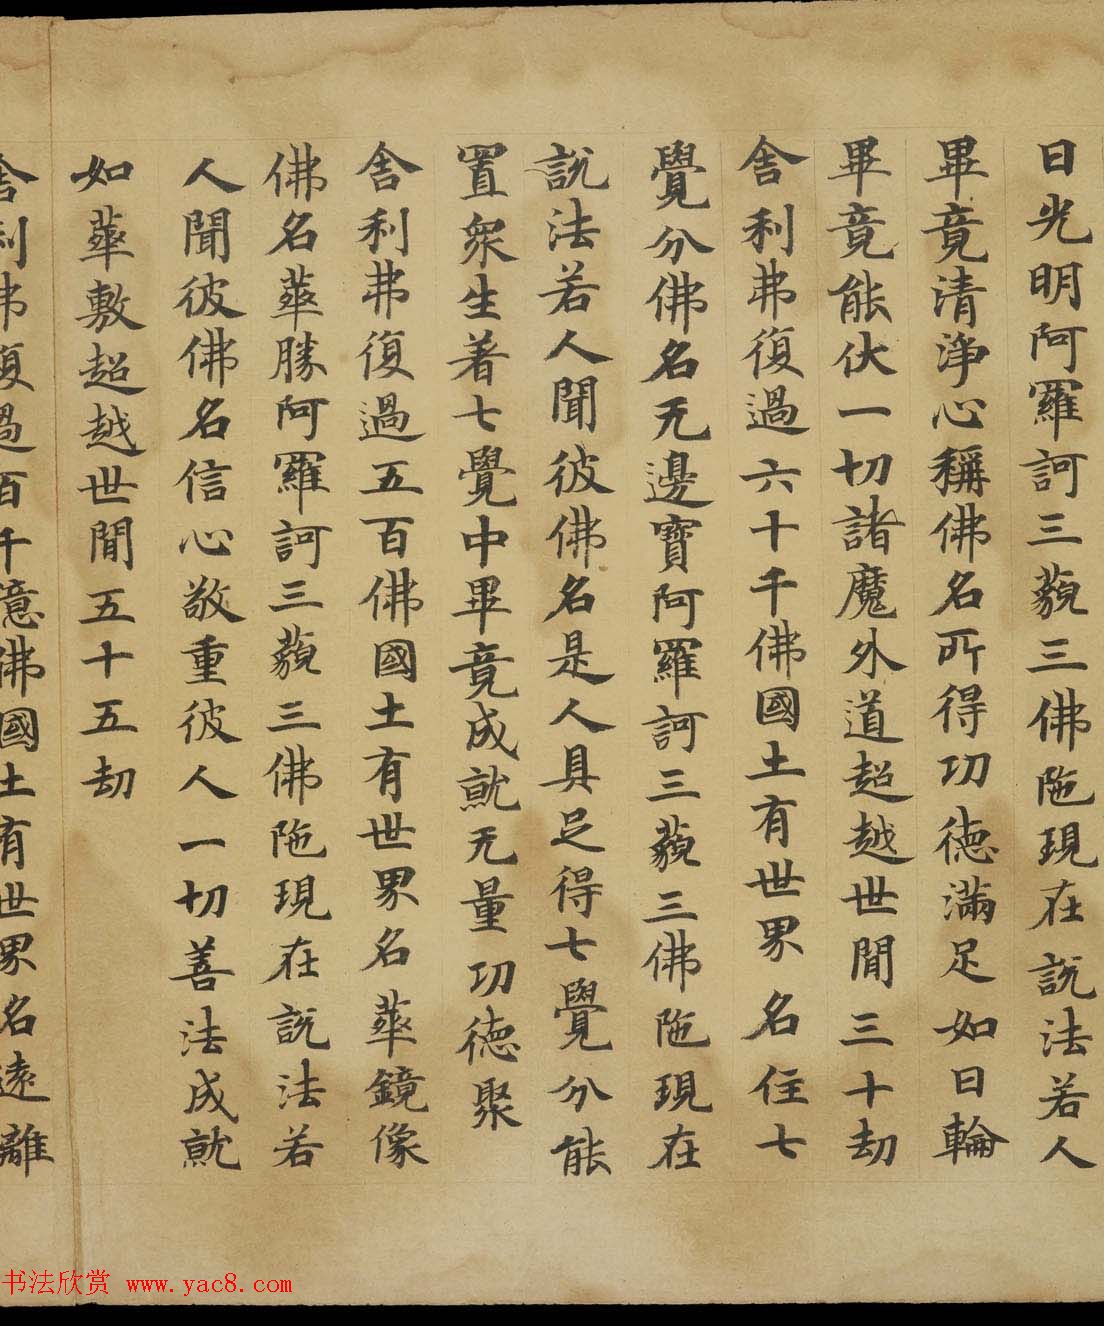 日光明阿羅訶三藐三佛陁現在說法若人
畢竟清淨心稱佛名所得功德滿足如日輪
畢竟能伏一切諸魔外道超越世間三十劫
舍利弗復過六十千佛國土有世界名住七
覺分佛名无邊寶阿羅訶三藐三佛陁現在
說法若人聞彼佛名是人具足得七覺分能
置衆生著七覺中畢竟成就无量功德聚
舍利弗復過五百佛國土有世界名華鏡像
佛名華勝阿羅訶三藐三佛陁現在說法若
人聞彼佛名信心敬重彼人一切善法成就
如華敷超越世間五十五劫
舍利弗復過百千億佛國土有世界名遠離
书法欣赏 www.yac8.com